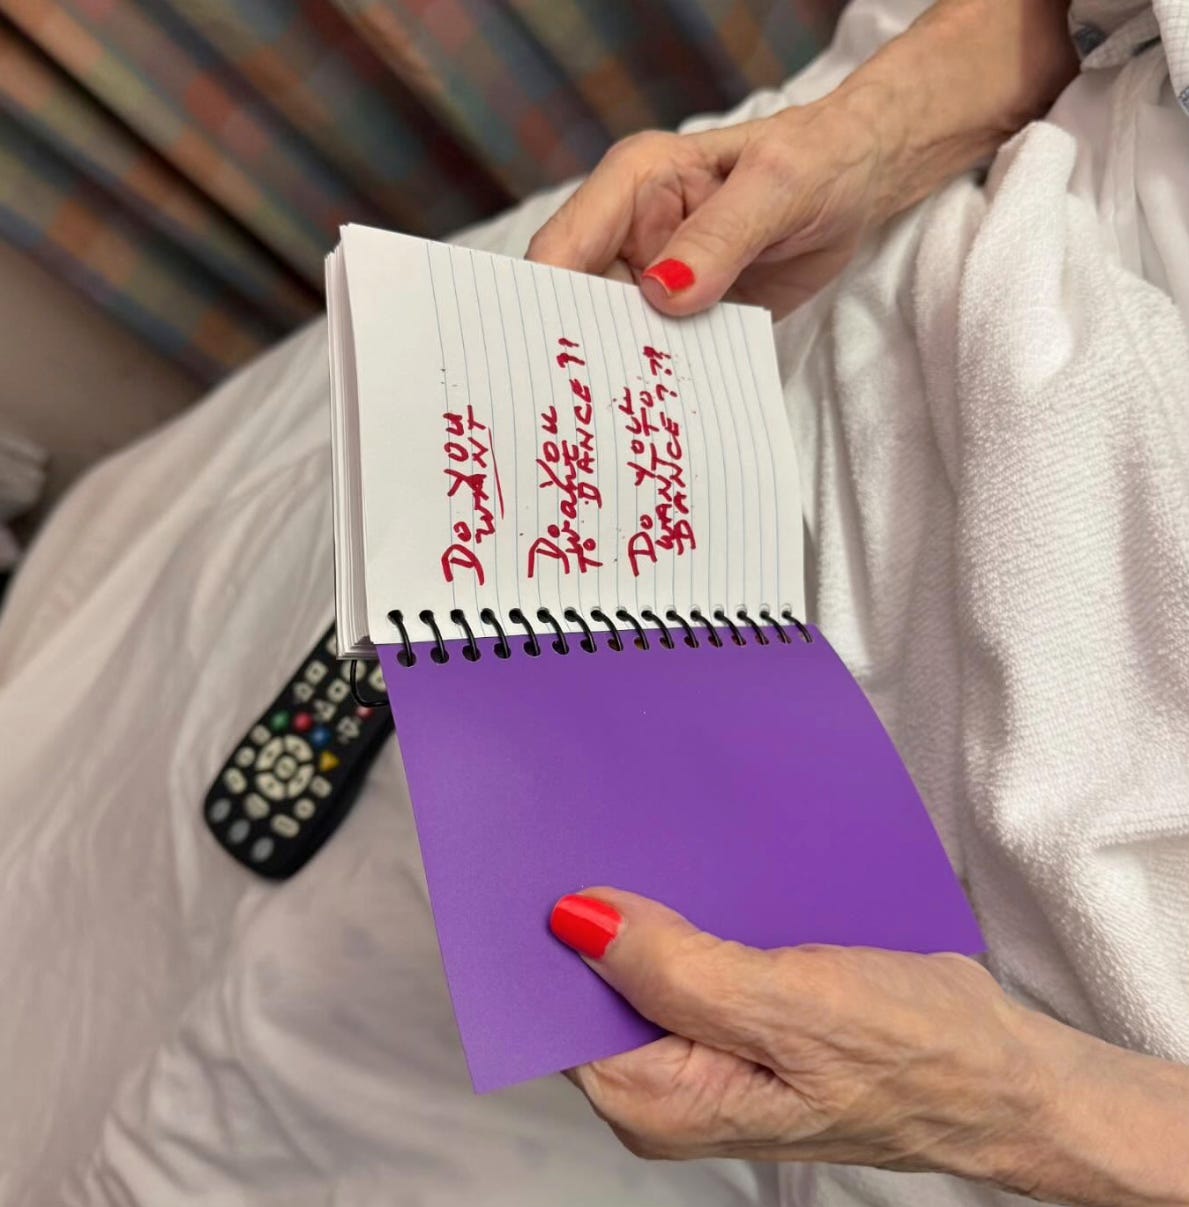 Do YOU
WANT
Do YOU
TO DANCE ?!
Do YOU
WANT TO
DANCE ???